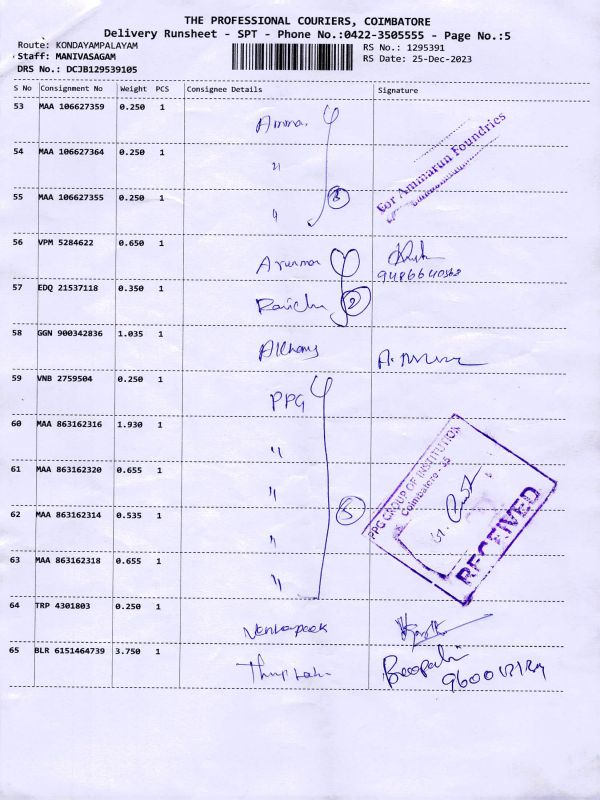 THE PROFESSIONAL COURIERS, COIMBATORE
Delivery Runsheet - SPT - Phone No.:0422-3505555 - Page No.:5
Route: KONDAYAMPALAYAM RS No.: 1295391
Staff: MANIVASAGAM RS Date: 25-Dec-2023
DRS No.: DCJB129539105
S No Consignment No Weight PCS Consignee Details Signature
53 MAA 106627359 0.250 1
For Ammarun Foundries
54 MAA 106627364 0.250 1 "
55 MAA 106627355 0.250 1 " 3
56 VPM 5284622 0.650 1
57 EDQ 21537118 0.350 1 2
58 GGN 900342836 1.035 1
59 VNB 2759504 0.250 1 PPG
60 MAA 863162316 1.930 1 "
PPG GROUP OF INSTITUTION
Coimbatore - 35
61 MAA 863162320 0.655 1 "
62 MAA 863162314 0.535 1 " 5
RECEIVED
63 MAA 863162318 0.655 1 "
64 TRP 4301803 0.250 1
65 BLR 6151464739 3.750 1